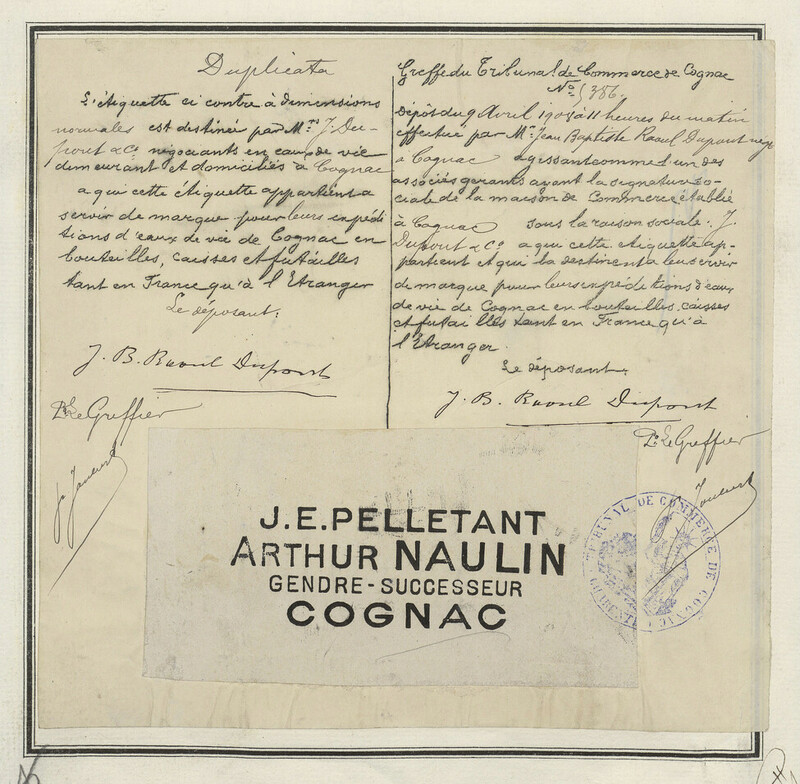 Duplicata
L'étiquette ci contre à dimensions
normales est destinée par Mrs J. Du-
pont & Co négociants en eaux de vie
demeurant et domiciliés à Cognac
a qui cette étiquette appartient a
servir de marque pour leurs expédi
tions d'eaux de vie de Cognac en
bouteilles, caisses et futailles
tant en France qu'à l'Etranger
Le déposant:
J. B. Raoul Dupont
Pr Le Greffier
Greffe du Tribunal de Commerce de Cognac
No 5386.
Dépôt du 9 Avril 1904 à 11 heures du matin
effectué par Mr Jean Baptiste Raoul Dupont négt
a Cognac agissant comme l'un des
associés gérants ayant la signature so-
ciale de la maison de Commerce établie
à Cognac sous la raison sociale: J.
Dupont & Co a qui cette etiquette ap-
partient et qui la destinent a leur servir
de marque pour leurs expéditions d'eaux
de vie de Cognac en bouteilles, caisses
et futailles tant en France qu'à
l'Etranger.
Le déposant:
J. B. Raoul Dupont
Pr Le Greffier
J.E.PELLETANT
ARTHUR NAULIN
GENDRE-SUCCESSEUR
COGNAC
TRIBUNAL DE COMMERCE DE COGNAC
CHARENTE